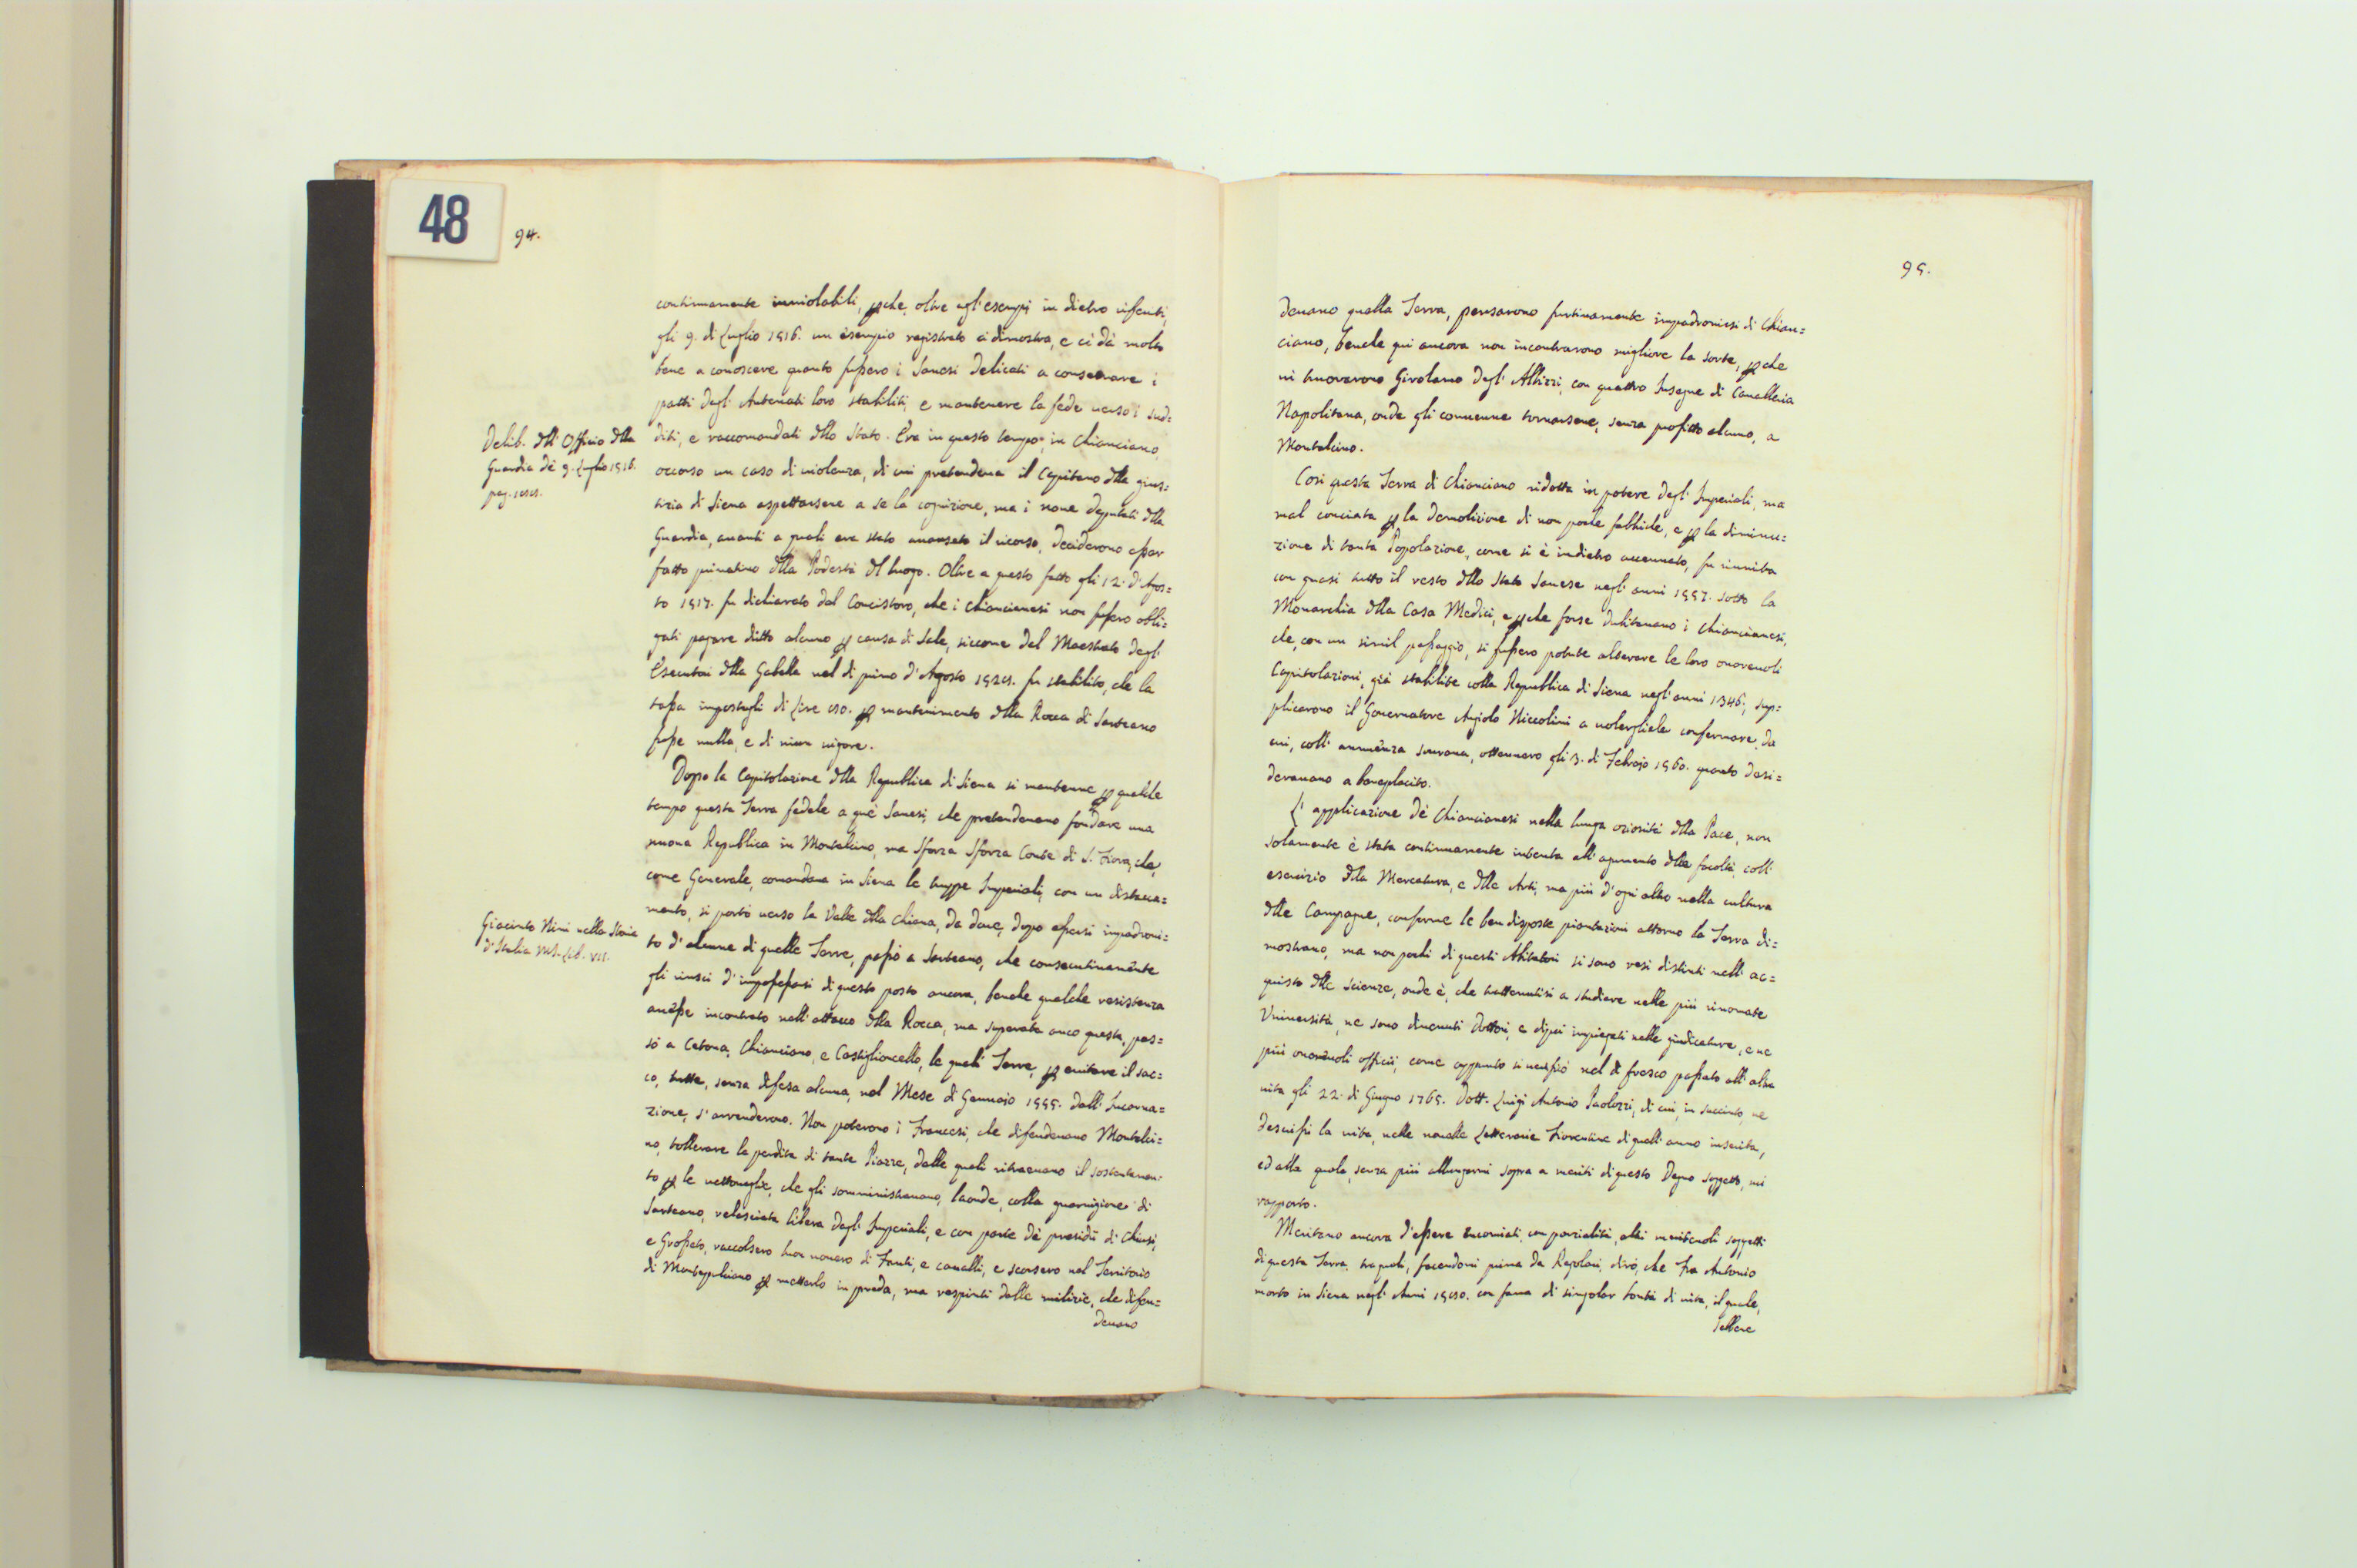 48
94.
continuamente inviolabili, pche, oltre agl'esempi in dietro riferiti,
gli 9. di Luglio 1516. un esempio registrato ci dimostra, e ci dà molto
bene a conoscere quanto fussero i Sanesi delicati a conservare i
patti degl'Antenati loro stabiliti, e mantenere la fede verso i sud=
diti, e raccomandati dllo Stato. Era in questo tempo, in Chianciano,
occorso un caso di violenza, di cui pretendeva il Capitano dlla gius=
tizia di Siena aspettarsene a se la cognizione, ma i nove deputati dlla
Guardia, avanti a quali era stato avanzato il ricorso, deciderono esser
fatto privativo dlla Podestà dl luogo. Oltre a questo fatto gli 12. d'Agos=
to 1517. fu dichiarato dal Concistoro, che i Chiancianesi non fussero obli=
gati pagare ditto alcuno p causa di Sale, siccome dal Maestrato degl'
Esecutori dlla Gabella nel di primo d'Agosto fu stabilito, che la
tassa impostagli di Lire p mantenimento dlla Rocca di Sarteano
fusse nulla, e di niun vigore.
Dopo la Capitolazione dlla Republica di Siena si mantenne p qualche
tempo questa Terra fedele a que' Sanesi, che pretendevano fondare una
nuova Republica in Montalcino, ma Sforza Sforza Conte di S. Fiora, che,
come Generale, comandava in Siena le truppe Imperiali, con un distacca=
mento, si portò verso la Valle dlla Chiana, da dove, dopo essersi impadroni=
to d'alcune di quelle Terre, passò a Sarteano, che consecutivamente
gli riuscì d'impossessarsi di questo posto ancora, benche qualche resistenza
avesse incontrato nell'attacco dlla Rocca, ma superata anco questa, pas=
sò a Cetona, Chianciano, e Castiglioncello, le quali Terre, p evitare il sac=
co, tutte, senza difesa alcuna, nel Mese di Gennaio 1555. dall'Incarna=
zione, s'arrenderono. Non poterono i Francesi, che difendevano Montalci=
no, tollerare la perdita di tante Piazze, dalle quali ritraevano il sostentamen=
to p le vettovaglie, che gli somministravano, laonde, colla guarnigione di
Sarteano, relasciata libera dagl'Imperiali, e con parte dè presidii di Chiusi,
e Grosseto, raccolsero buon numero di Fanti, e cavalli, e scorsero nel Territorio
di Montepulciano p metterlo in preda, ma respinti dalle milizie, che difen=
devano
Delib. dll'Officio dlla
Guardia dè 9. Luglio 1516.
Giacinto Nini nella Storia
d'Italia MS. Lib. VII.
95.
devano quella Terra, pensarono furtivamente impadronirsi di Chian=
ciano, benche qui ancora non incontrarono migliore la sorte, pche
vi trovarono Girolamo degl'Albizzi, con quattro Insegne di Cavalleria
Napolitana, onde gli convenne tornarsene, senza profitto alcuno, a
Montalcino.
Così questa Terra di Chianciano ridotta in potere degl'Imperiali, ma
mal conciata p la demolizione di non poche fabbriche, e p la diminu=
zione di tanta Popolazione, come si è indietro accennato, fu riunita
con quasi tutto il resto dllo Stato Sanese negl'anni 1557. sotto la
Monarchia dlla Casa Medici, e pche forse dubitavano i Chiancianesi,
che, con un simil passaggio, si fussero potute alterare le loro onorevoli
Capitolazioni, già stabilite colla Republica di Siena negl'anni 1346., sup=
plicarono il Governatore Angiolo Niccolini a volergliele confermare, da
cui, coll'annuenza sovrana, ottennero gli 3. di Febraio 1560. quanto desi=
deravano a beneplacito.
L'applicazione dè Chiancianesi nella lunga oziosità dlla Pace, non
solamente è stata continuamente intenta all'aumento dlle facoltà, coll'
esercizio dlla Mercatura, e dlle Arti, ma più d'ogni altro nella cultura
dlle Campagne, conforme le ben disposte piantazioni attorno la Terra di=
mostrano, ma non pochi di questi Abitatori si sono resi distinti nell'ac=
quisto dlle scienze, onde è, che trattenutisi a studiare nelle più rinomate
Università, ne sono divenuti Dottori, e dipoi impiegati nelle giudicature, e ne
più onorevoli officii, come appunto si verificò nel di fresco passato all'altra
vita gli 22. di Giugno 1765. Dott. Luigi Antonio Paolozzi, di cui, in succinto, ne
descrissi la vita, nelle novelle Letterarie Fiorentine di quell'anno inserita,
ed alla quale, senza più allungarmi sopra a meriti di questo degno soggetto, mi
rapporto.
Meritano ancora d'essere encomiati, con parzialità, altri meritevoli soggetti
di questa Terra, tra quali, facendomi prima da Regolari, dirò, che Fra Antonio
morto in Siena negl'Anni con fama di singolar bontà di vita, il quale,
sebbene